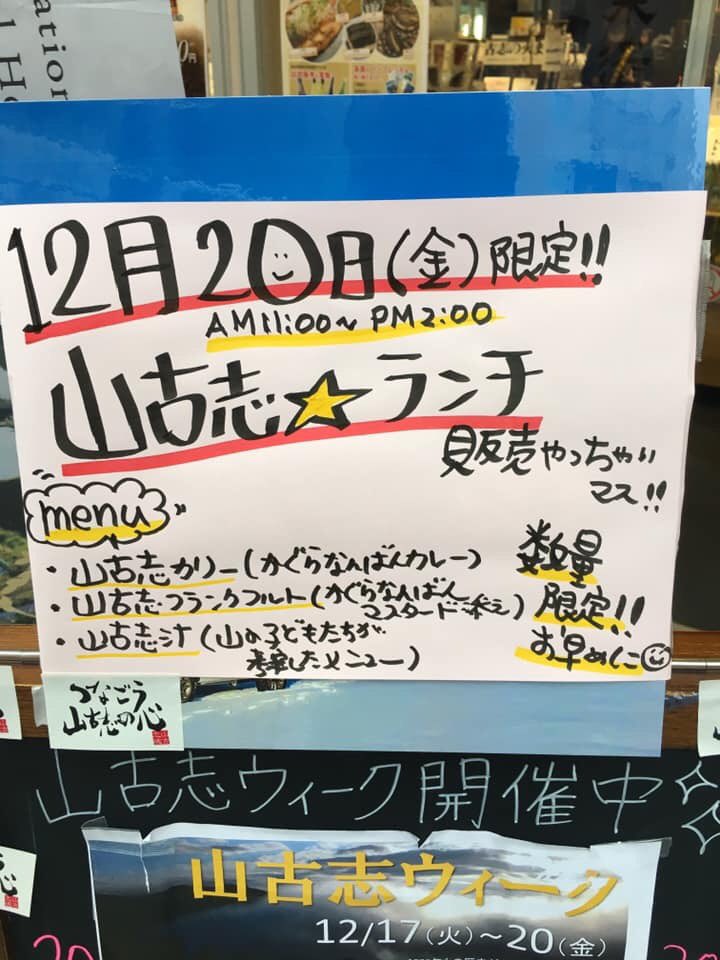 12月20日(金)限定!!
AM11:00〜PM2:00
山古志☆ランチ
販売やっちゃい
マス!!
menu
・山古志カリー(かぐらなんばんカレー)
・山古志フランクフルト(かぐらなんばん
マスタード添え)
・山古志汁(山の子どもたちが
考案したメニュー)
数量
限定!!
お早めに
つなごう
山古志の心
山古志ウィーク開催中
山古志ウィーク
12/17(火)〜20(金)